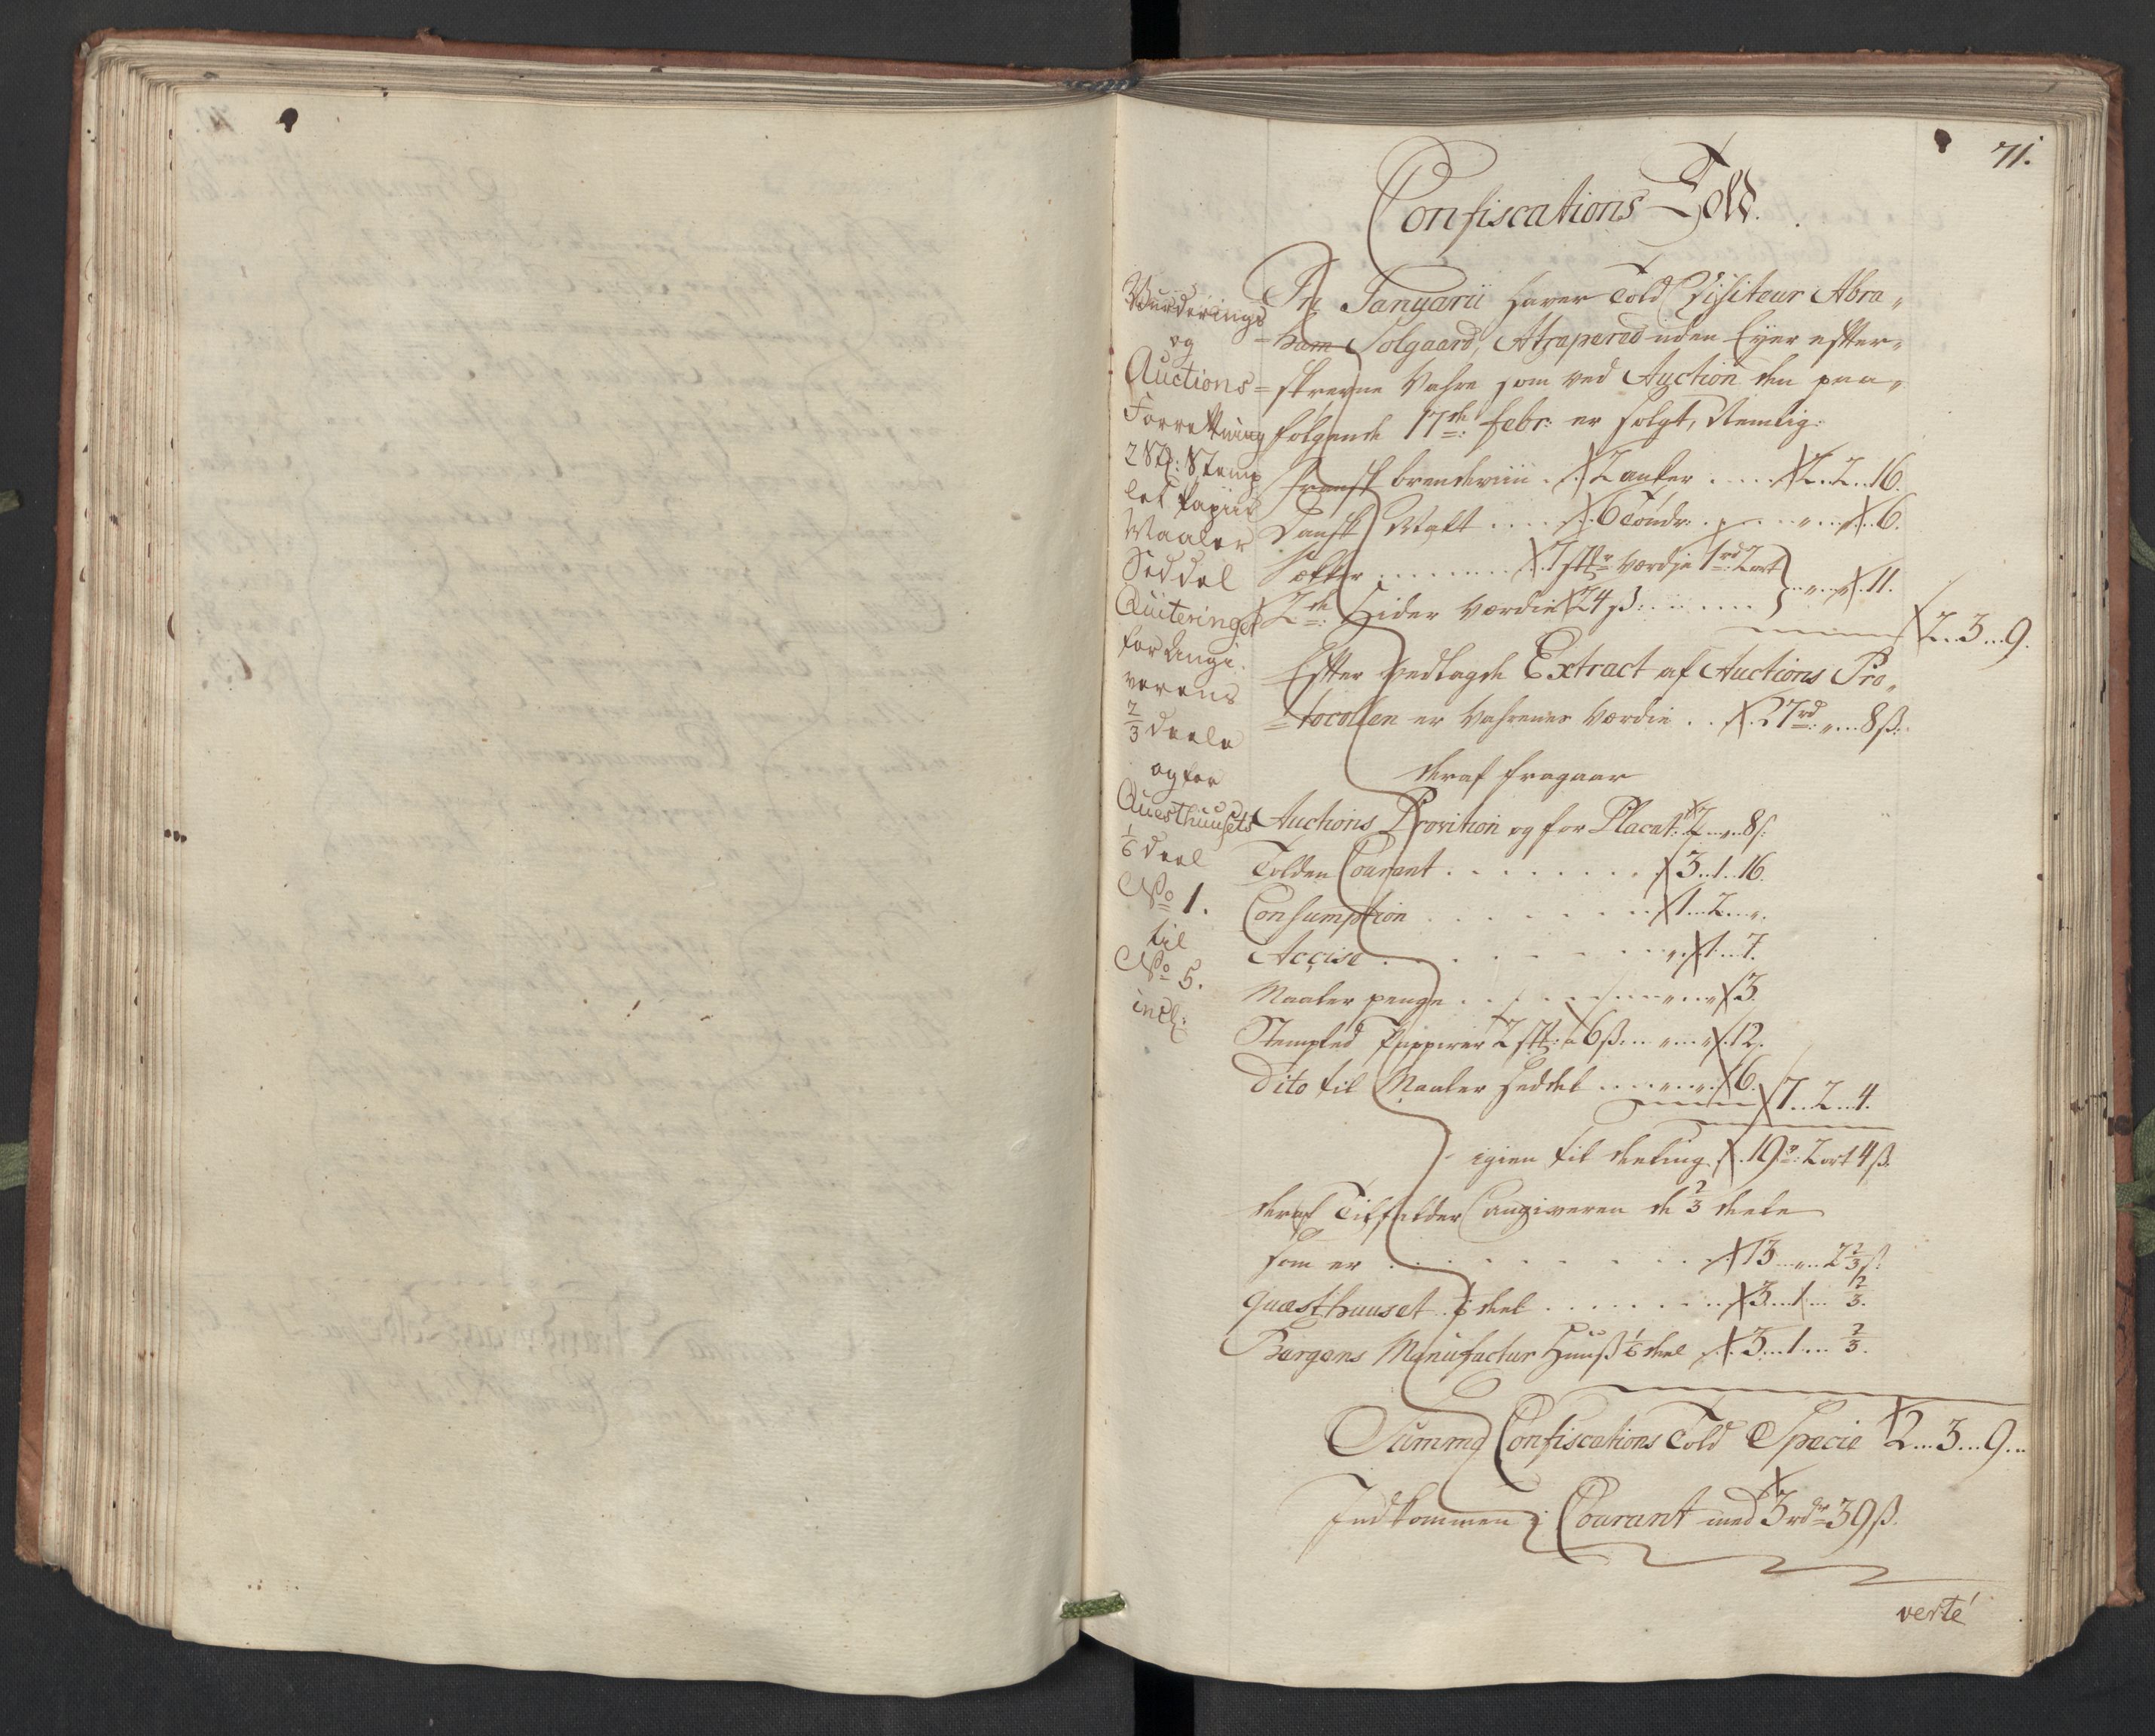 71.
Confiscations Told.
Vurderings
og
Auctions=
Forretning
2 Stk: Stemp
let Papiir
Maaler
Seddel
Qüiteringer
for Angi
verens
2/3 deele
og for
Quæsthuusets
1/6 deel
No 1.
til
No 5.
incl:
In Januarii haver Told Visiteur Abra„
=ham Solgaard, Atraperet uden Eyer efter„
=skrevne Vahre som ved Auction den paa„
følgende 17de febr: er solgt, Nemlig:
Fransk brendeviin . 2 anker . . . . 2..2..16.
Dansk Malt . . . . 6 Tønder . . . „ . . „ . . 6.
Sækker . . . . . . . 7 stkr værdje 1rd 2 ort
2de Sider værdie 24 ß: . . . . . . „ . . „ . . 11.
2..3...9.
Efter vedlagde Extract af Auctions Pro„
=tocollen er Vahrenes værdie . . 27rd „ ... 8 ß:
deraf fragaar
Auctions Provition og for Placat: 2...„..8 ß:
Tolden Courant . . . . . . . . 3..1..16.
Consumption . . . . . . . . 1...2...„.
Accise . . . . . . . . „..1...7.
Maaler penge . . . . . . . „...„..3.
Stempled Pappirer 2 stk: a 6 ß: .. „...„..12.
Dito til Maaler Seddel . . . . „..„..6.
7...2...4.
igien til deeling . 19rd: 2 ort 4 ß.
deraf Tilfalder Angiveren de 2/3 deele
som er . . . . . . . . . 13...„..2 2/3 ß:
Quæsthuuset 1/6 deel . . . . . . . 3...1... 2/3.
Bergens Manufactur Huuß 1/6 deel . 3...1... 2/3.
Summa Confiscations Told Specie 2...3...9...
Indkommen i Courant med 3 rdr 39 ß.
verte